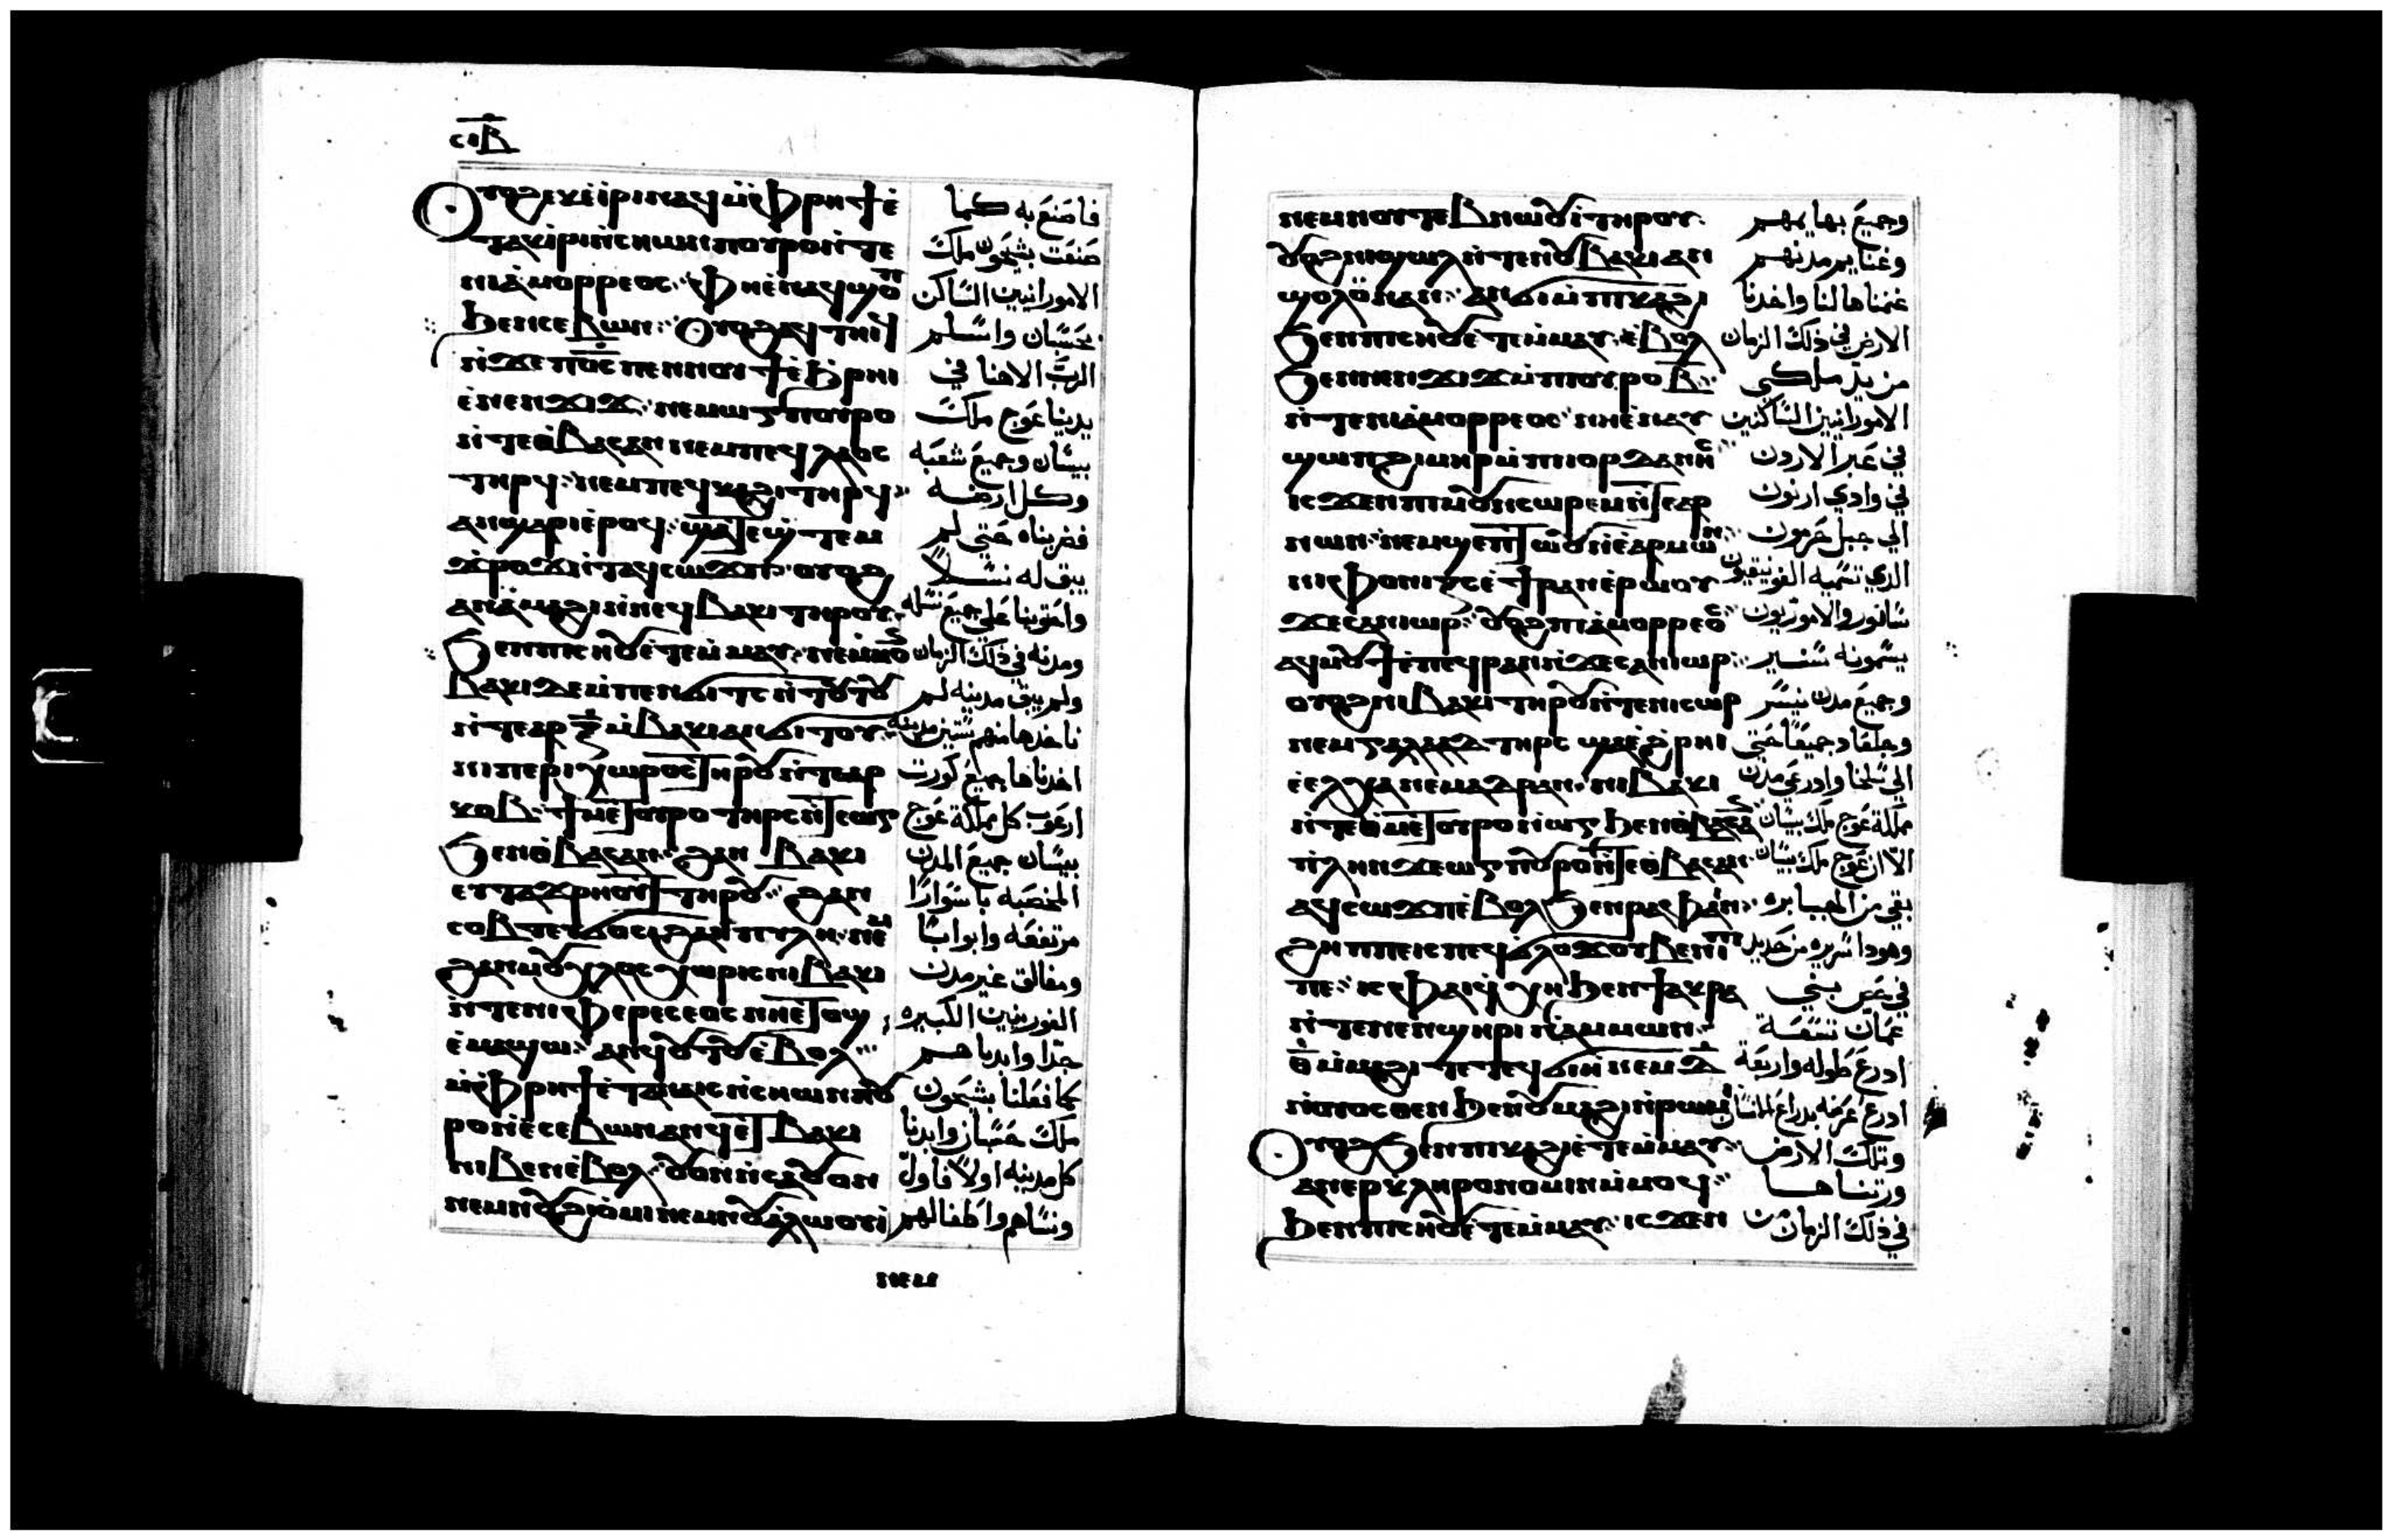 ⲥⲓⲃ
ⲟⲩⲟϩ ⲉⲕⲉⲓⲣⲓ ⲛⲁϥ ⲙⲫⲣⲏϯ ⲉ
ⲧⲁⲕⲓⲣⲓ ⲛⲥⲏⲱⲛ ⲡⲟⲩⲣⲟ ⲛⲧⲉ
ⲛⲓⲁⲙⲟⲣⲣⲉⲟⲥ ⲫⲏ ⲉⲛⲁϥϣⲟⲡ
ϧⲉⲛ ⲉⲥⲉⲃⲱⲛ ⲟⲩⲟϩ ⲁϥⲧⲏⲓϥ
ⲛϫⲉ ⲡⲟⲥ ⲡⲉⲛⲛⲟⲩϯ ⲉϧⲣⲏⲓ
ⲉⲛⲉⲛϫⲓϫ ⲛⲉⲙ ⲱⲅ ⲡⲟⲩⲣⲟ
ⲛⲧⲉ ⲑⲃⲁⲥⲁⲛ ⲛⲉⲙ ⲡⲉϥⲗⲁⲟⲥ
ⲧⲏⲣϥ ⲛⲉⲙ ⲡⲉϥⲕⲁϩⲓ ⲧⲏⲣϥ
ⲁⲛϣⲁⲣⲓ ⲉⲣⲟϥ ϣⲁⲧⲉϣⲧⲉⲙ
ϫⲣⲟϫ ⲛⲧⲁϥ ⲥⲱϫⲡ ⲟⲩⲟϩ
ⲁⲛⲁⲙⲁϩⲓ ⲛⲛⲉϥⲃⲁⲕⲓ ⲧⲏⲣⲟⲩ
ϧⲉⲛ ⲡⲓⲥⲏⲟⲩ ⲉⲧⲉⲙⲙⲁⲩ
ⲃⲁⲕⲓ ϫⲉ ⲙⲡⲉⲛϭⲓⲧⲥ ⲛⲧⲟⲧⲟⲩ
ⲙⲃⲁⲕⲓ ⲁⲛϭⲓⲧⲟⲩ
ⲛⲓⲡⲉⲣⲓⲭⲱⲣⲟⲥ ⲧⲏⲣⲟⲩ ⲛⲧⲉ ⲁⲣ
ⲕⲟⲃ ϯⲙⲉⲧⲟⲩⲣⲟ ⲧⲏⲣⲥ ⲛⲧⲉ ⲱⲅ
ϧⲉⲛ ⲑⲃⲁⲥⲁⲛ ϩⲁⲛ ⲃⲁⲕⲓ
ⲉⲩⲧⲁϫⲣⲏⲟⲩⲧ ⲧⲏⲣⲟⲩ ϩⲁⲛ
ⲥⲟⲃⲧ ⲉⲩϭⲟⲥⲓ ϩⲁⲛ ⲡⲩⲗⲏ ⲛⲉⲙ
ϩⲁⲛ ⲙⲟⲩⲭⲗⲟⲥ ⲭⲱⲣⲓⲥ ⲛⲓⲃⲁⲕⲓ
ⲛⲧⲉ ⲛⲓⲫⲉⲣⲉⲥⲉⲟⲥ ⲛⲏ ⲉⲧⲟϣ
ⲉⲙⲁϣⲱ ⲁⲛϥⲟⲧⲟⲩ ⲉⲃⲟⲗ
ⲙⲫⲣⲏϯ ⲉⲧⲁⲛⲁⲓⲥ ⲛⲥⲏⲱⲛ ⲡⲟⲩ
ⲣⲟ ⲛⲉⲥⲉⲃⲱⲛ ⲁⲛϥⲉⲧ ⲃⲁⲕⲓ
ⲛⲓⲃⲉⲛ ⲉⲃⲟⲗ ⲟⲩⲟⲛ ⲛⲥⲁ ⲟⲩⲟⲛ
ⲛⲉⲙ ⲛⲟⲩϩⲓⲟⲙⲓ ⲛⲉⲙ ⲛⲟⲩⲁⲗⲱⲟⲩⲓ
ⲛⲉⲙ
فاصنع به كما
صنعت بشيحون ملك
الامورانيين الساكن
بحسبان واسلم
الرب الاهنا في
يدينا عوج ملك
بيسان وجميع شعبه
وكل ارضه
فضربناه حتى لم
يبق له نسلاً
واحتوينا على جميع
ومدنه في ذلك الزمان
ولم يبق مدينه لم
ناخدها منهم ستين مدينه
اخدناها جميع كورت
ارعوب كل مملكة عوج
بيسان جميع المدن
المحصنه باسوارا
مرتفعه وابوابا
ومغالق غير مدن
الفورينيين الكبيره
جدا وابدناهم
كما فعلنا بشيحون
ملك حسبان وابدنا
كل مدينه اولا فاول
ونساهم واطفالهم
ⲛⲉⲙ ⲛⲟⲩⲧⲉⲃⲛⲱⲟⲩⲓ ⲧⲏⲣⲟⲩ
ⲟⲩⲟϩ ⲛⲓϣⲱⲗ ⲛⲧⲉ ⲛⲟⲩⲃⲁⲕⲓ ⲁⲛ
ϣⲟⲗⲟⲩ ⲛⲁⲛ ⲁⲛϭⲓ ⲙⲡⲕⲁϩⲓ
ϧⲉⲛ ⲡⲓⲥⲏⲟⲩ ⲉⲧⲉⲙⲙⲁⲩ ⲉⲃⲟⲗ
ϧⲉⲛ ⲛⲉⲛϫⲓϫ ⲙⲡⲟⲩⲣⲟ ⲃ
ⲛⲧⲉ ⲛⲓⲁⲙⲟⲣⲣⲉⲟⲥ ⲛⲏ ⲉⲛⲁⲩ
ϣⲱⲡ ϩⲓⲙⲏⲣ ⲙⲡⲓⲟⲣⲇⲁⲛⲏⲥ
ⲓⲥϫⲉⲛ ⲡⲓⲙⲟⲩⲛⲥⲱⲣⲉⲙ ⲛⲧⲉ ⲁⲣ
ⲛⲱⲛ ⲛⲉⲙ ϣⲁ ⲡⲧⲱⲟⲩ ⲛⲉⲁⲣⲙⲱⲛ
ⲛⲓⲫⲟⲛⲓⲕⲥ ⲉϯⲣⲁⲛ ⲉⲣⲱⲟⲩ
ϫⲉ ⲥⲁⲛⲓⲱⲣ ⲟⲩⲟϩ ⲡⲓⲁⲙⲟⲣⲣⲉⲟⲥ
ⲁϥⲙⲟⲩϯ ⲉⲡⲉϥⲣⲁⲛ ϫⲉ ⲥⲁⲛⲓⲱⲣ
ⲟⲩⲟϩ ⲛⲓⲃⲁⲕⲓ ⲧⲏⲣⲟⲩ ⲛⲧⲉ ⲙⲓⲥⲱⲣ
ⲛⲉⲙ ⲅⲁⲗⲁⲁⲇ ⲧⲏⲣⲥ ϣⲁ ⲉϩⲣⲏⲓ
ⲉⲉⲗⲭⲁ ⲛⲉⲙ ⲁⲇⲣⲁⲛ ⲛⲓⲃⲁⲕⲓ
ⲛⲧⲉ ⲑⲙⲉⲧⲟⲩⲣⲟ ⲛⲱⲅ ϧⲉⲛ ⲑⲃⲁⲥⲁⲛ
ⲡⲗⲏⲛ ϫⲉ ⲱⲅ ⲡⲟⲩⲣⲟ ⲛⲧⲉ ⲑⲃⲁⲥⲁⲛ
ⲁϥⲥⲱϫⲡ ⲉⲃⲟⲗ ϧⲉⲛ ⲣⲁⲫⲁⲓⲛ
ϩⲏⲡⲡⲉ ⲓⲥ ⲡⲉϥϭⲗⲟϫ ⲟⲩⲃⲉⲛⲓⲡⲓ
ⲡⲉ ⲓⲥ ⲫⲁⲓ ϥⲭⲏ ϧⲉⲛ ϯⲁⲕⲣⲁ
ⲛⲧⲉ ⲛⲉⲛϣⲏⲣⲓ ⲛⲁⲙⲙⲱⲛ
ⲑ ⲙⲙⲁϩⲓ ⲧⲉ ⲧⲉϥϭⲓⲏ ⲛⲉⲙ ⲇ
ⲛⲟⲩⲟⲥⲑⲉⲛ ϧⲉⲛ ⲟⲩⲙⲁϩⲓ ⲛⲣⲱⲙⲓ
ⲟⲩⲟϩ ϧⲉⲛ ⲡⲓⲕⲁϩⲓ ⲉⲧⲉⲙⲙⲁⲩ
ⲁⲛⲉⲣⲕⲗⲏⲣⲟⲛⲟⲙⲓⲛ ⲙⲙⲟϥ
ϧⲉⲛ ⲡⲓⲥⲏⲟⲩ ⲉⲧⲉⲙⲙⲁⲩ ⲓⲥϫⲉⲛ
وجميع بهايمهم
وغنايم مدنهم
غنمناها لنا واخدنا
الارض في ذلك الزمان
من يد ملكي
الامورانيين الساكنين
في عبر الاردن
في وادي ارنون
الى جبل حرمون
الذي تسميه الفونيقيون
سانور والاموريون
يسمونه سنير
وجميع مدن ميسر
وجلعاد جميعا حتى
الى سلخا وادرعي مدن
مملكة عوج ملك بيسان
الا ان عوج ملك بيسان
بقي من الجبابره
وهودا سريره من حديد
في بني
عمان تسعة
ادرع طوله واربعة
ادرع عرضه بدراع الانسان
وتلك الارض
ورتناها
في ذلك الزمان من